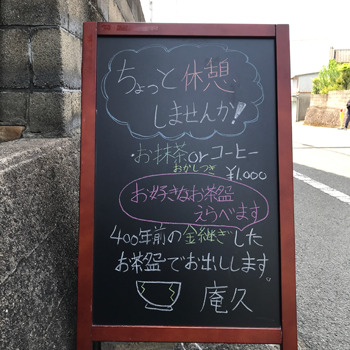 ちょっと休憩
しませんか!
・お抹茶orコーヒー
おかしつき
¥1,000
お好きなお茶盌
えらべます
400年前の金継ぎした
お茶盌でお出しします。
庵久